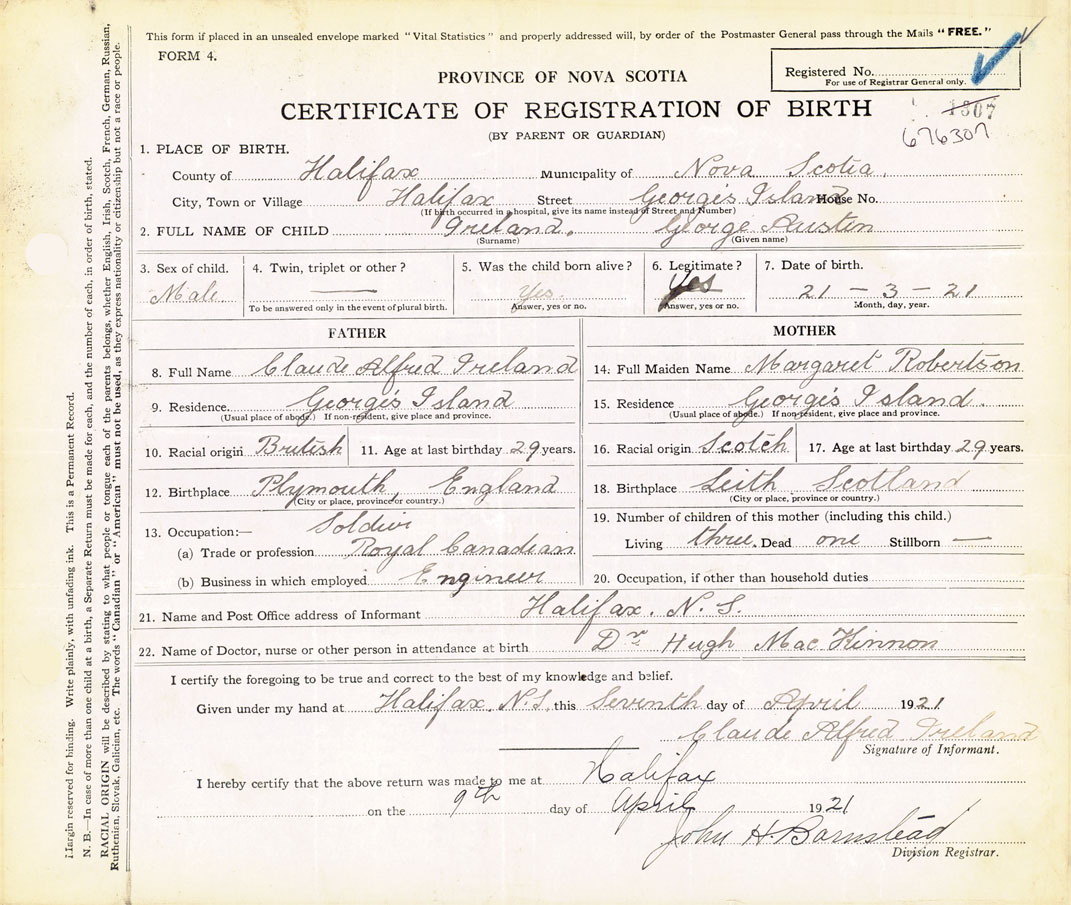 This form if placed in an unsealed envelope marked "Vital Statistics" and properly addressed will, by order of the Postmaster General pass through the Mails "FREE."
FORM 4.
Registered No.
For use of Registrar General only.
PROVINCE OF NOVA SCOTIA
CERTIFICATE OF REGISTRATION OF BIRTH
1307
(BY PARENT OR GUARDIAN)
676307
1. PLACE OF BIRTH.
County of Halifax Municipality of Nova Scotia.
City, Town or Village Halifax Street George's Island House No.
(If birth occurred in a hospital, give its name instead of Street and Number)
2. FULL NAME OF CHILD Ireland, George Austen
(Surname) (Given name)
3. Sex of child. 4. Twin, triplet or other? 5. Was the child born alive? 6. Legitimate? 7. Date of birth.
Male — Yes. Yes 21 - 3 - 21
To be answered only in the event of plural birth. Answer, yes or no. Answer, yes or no. Month, day, year.
FATHER
8. Full Name Claude Alfred Ireland
9. Residence. George's Island
(Usual place of abode.) If non-resident, give place and province.
10. Racial origin British 11. Age at last birthday 29 years.
12. Birthplace Plymouth, England
(City or place, province or country.)
13. Occupation:— Soldier
(a) Trade or profession Royal Canadian
(b) Business in which employed Engineer
MOTHER
14. Full Maiden Name Margaret Robertson
15. Residence George's Island.
(Usual place of abode.) If non-resident, give place and province.
16. Racial origin Scotch 17. Age at last birthday 29 years.
18. Birthplace Leith Scotland
(City or place, province or country.)
19. Number of children of this mother (including this child.)
Living three. Dead one Stillborn —
20. Occupation, if other than household duties
21. Name and Post Office address of Informant Halifax. N. S.
22. Name of Doctor, nurse or other person in attendance at birth Dr. Hugh MacKinnon
I certify the foregoing to be true and correct to the best of my knowledge and belief.
Given under my hand at Halifax. N.S. this Seventh day of April 1921
Claude Alfred Ireland
Signature of Informant.
I hereby certify that the above return was made to me at Halifax
on the 9th day of April 1921
John H. Barnstead
Division Registrar.
Margin reserved for binding. Write plainly, with unfading ink. This is a Permanent Record.
N. B.—In case of more than one child at a birth, a Separate Return must be made for each, and the number of each, in order of birth, stated.
RACIAL ORIGIN will be described by stating to what people or tongue each of the parents belongs, whether English, Irish, Scotch, French, German, Russian,
Ruthenian, Slovak, Galician, etc. The words "Canadian" or "American" must not be used, as they express nationality or citizenship but not a race or people.